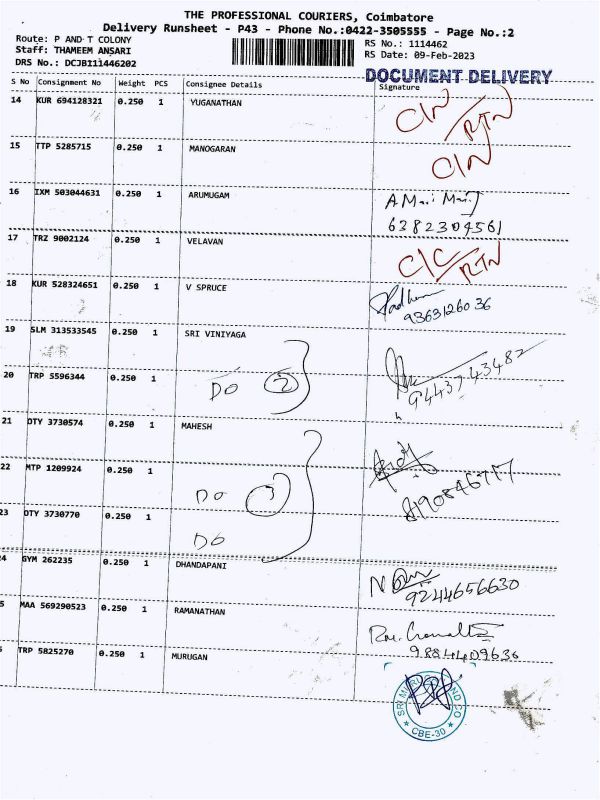 THE PROFESSIONAL COURIERS, Coimbatore
Delivery Runsheet - P43 - Phone No.:0422-3505555 - Page No.:2
Route: P AND T COLONY
RS No.: 1114462
Staff: THAMEEM ANSARI
RS Date: 09-Feb-2023
DRS No.: DCJB111446202
DOCUMENT DELIVERY
S No Consignment No Weight PCS Consignee Details Signature
14 KUR 694128321 0.250 1 YUGANATHAN C/N RTN
15 TTP 5285715 0.250 1 MANOGARAN C/N
16 IXM 503044631 0.250 1 ARUMUGAM A Mari
6382304561
17 TRZ 9002124 0.250 1 VELAVAN C/C RTN
18 KUR 528324651 0.250 1 V SPRUCE
9363126036
19 SLM 313533545 0.250 1 SRI VINIYAGA
20 TRP 5596344 0.250 1 DO 2 9443743482
21 OTY 3730574 0.250 1 MAHESH
22 MTP 1209924 0.250 1 DO 3
23 OTY 3730770 0.250 1 DO
24 GYM 262235 0.250 1 DHANDAPANI
9244656630
5 MAA 569290523 0.250 1 RAMANATHAN
9884409636
TRP 5825270 0.250 1 MURUGAN
CBE-30